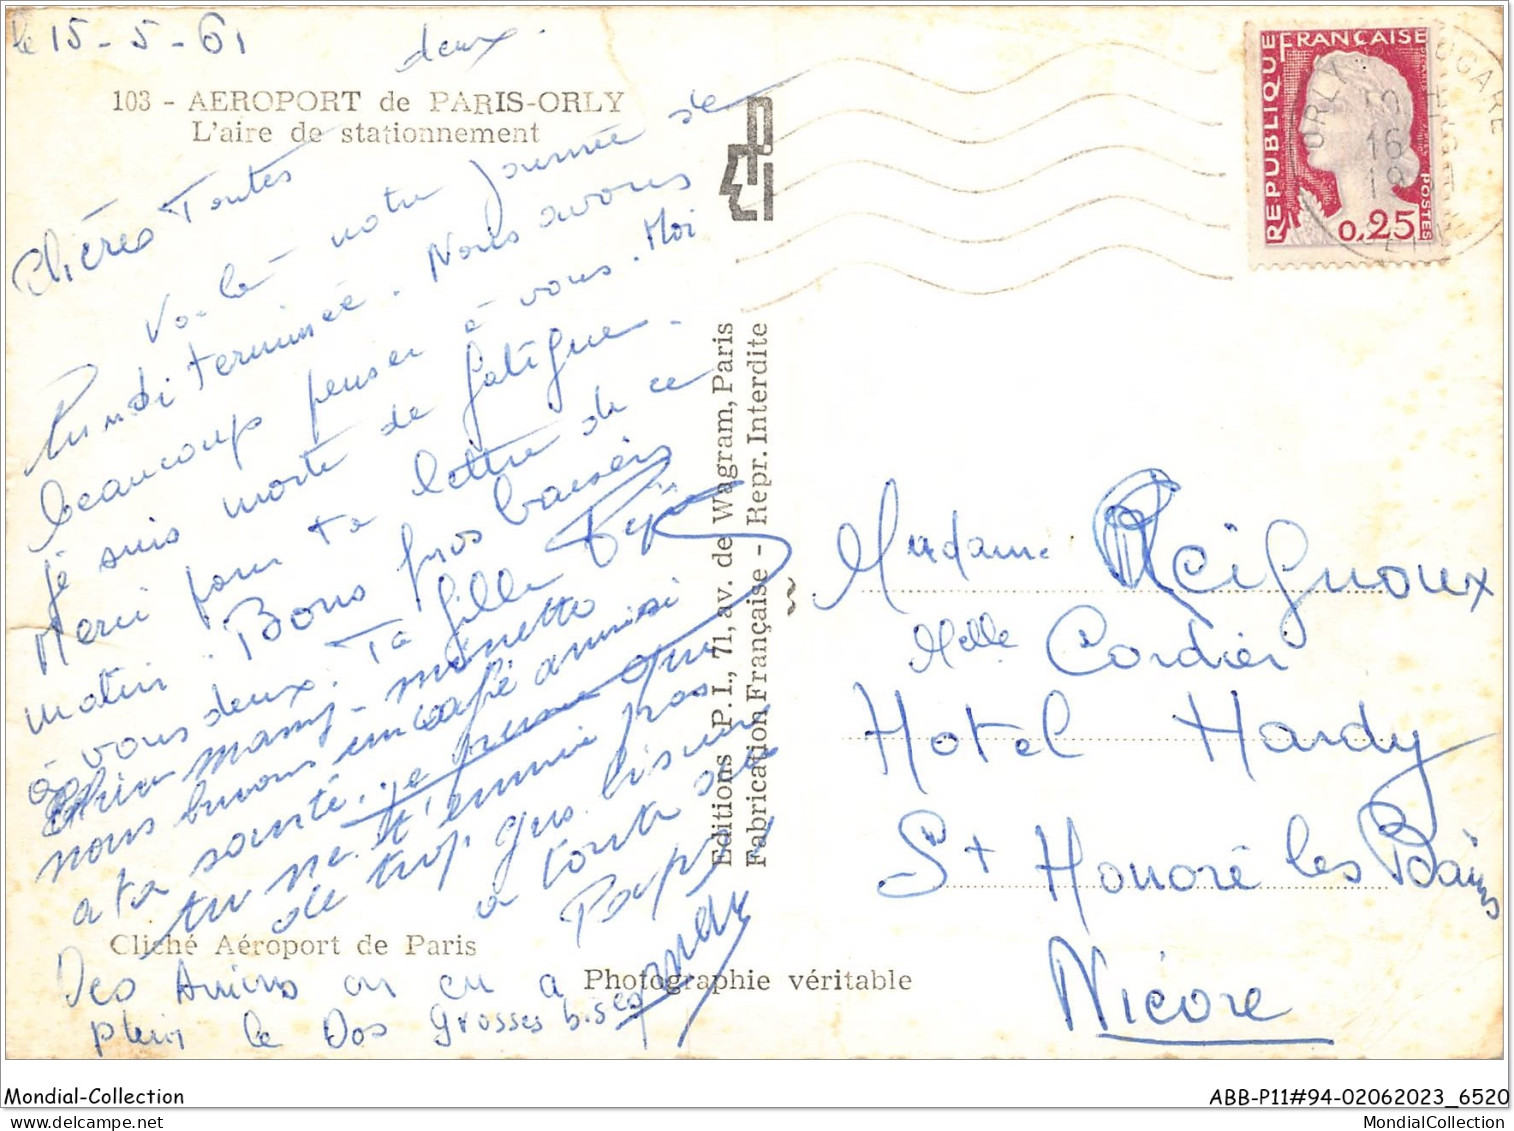 le 15-5-61
deux.
103 - AEROPORT de PARIS-ORLY
L'aire de stationnement
Chères Toutes
Voilà notre journée de
lundi terminée. Nous avons
beaucoup penser à vous. Moi
je suis morte de fatigue.
Merci pour ta lettre de ce
matin. Bons gros baisers
à vous deux. Ta fille
mamy - minette
nous buvons un café aussi
a ta santé. je pense que
tu ne t'ennuie pas
de trop. gros bisous
a toute deux
Papa
Cliché Aéroport de Paris
Des Amins on en a
plein le Dos Grosses bises
Photographie véritable
Editions P. I., 71, av. de Wagram, Paris
Fabrication Française - Repr. Interdite
REPUBLIQUE FRANÇAISE
POSTES
0,25
ORLY AEROGARE
16
19
Madame Reignoux
Melle Cordier
Hotel Hardy
St Honoré les Bains
Nièvre
Mondial-Collection
ABB-P11#94-02062023_6520
mondialcollection.net
MondialCollection